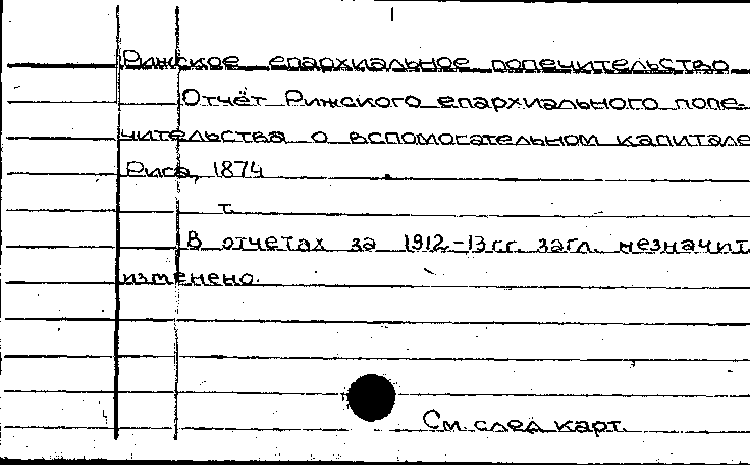 Рижское епархиальное попечительство
Отчёт Рижского епархиального попе-
чительства о вспомогательном капитале
Рига, 1874
т.
В отчетах за 1912-13 гг. загл. незначит.
изменено.
См. след карт.